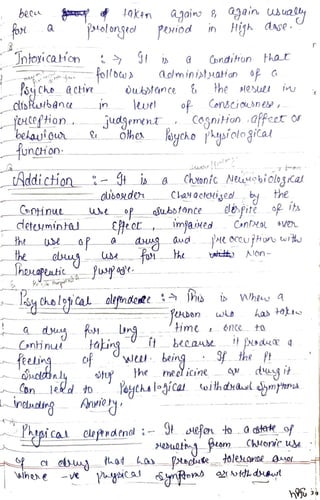 becu of taken again & again usually
for a prolonged period in High dose.
Intoxication :→ It is a condition that
follows administration of a
Psycho active substance & the results in
disturbance in level of Consciousness,
perception, judgement, Cognition affect or
behaviour & other Psycho physiological
function.
Addiction :- It is a Chronic Neurobiological
disorder Characterized by the
Continue use of substance despite of its
determintal Effect, impaired Control over
the use of a drug and preoccuption with
the drug use for the Non-
Therapeutic purpose.
Psychological dependence :→ This is when a
person who has taken
a drug for long time, once to
Continue taking it because it produce a
feeling of well being. If the pt
Suddanly stop the medicine or drug it
Can lead to Psychological withdrawl symptoms
including Anxiety.
Physical dependend :- It refer to a state of
resulting from Chronic use
of a drug that has produce tolerance and
where -ve physical symptoms of withdrawl